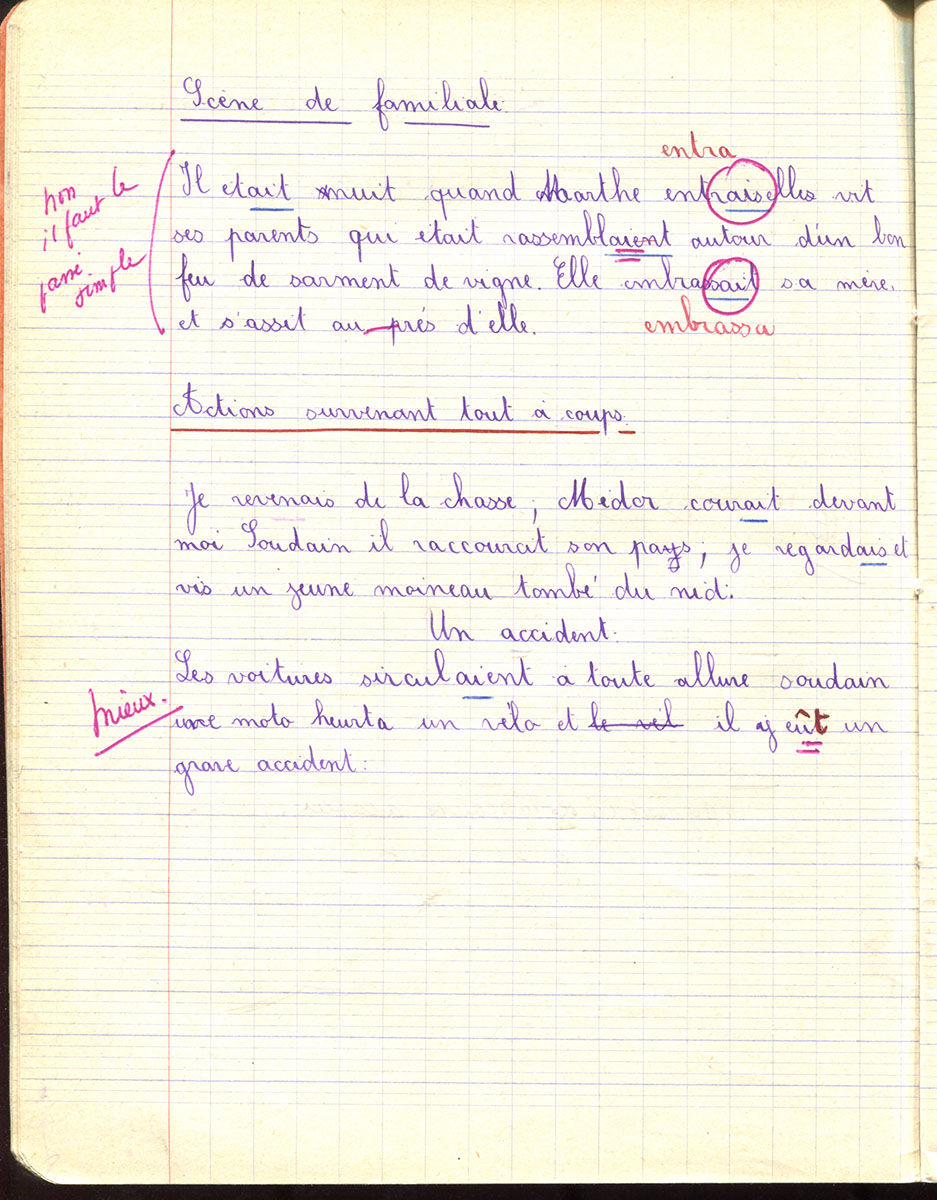 Scène de familiale.
entra
non
il faut le
passé
simple
Il etait nuit quand Marthe entraiselles vit
ses parents qui était rassemblaient autour d'un bon
feu de sarment de vigne. Elle embrassait sa mère.
et s'assit au prés d'elle.
embrassa
Actions survenant tout à coups.
Je revenais de la chasse ; Médor courait devant
moi Soudain il raccourcit son pays ; je regardais et
vis un jeune moineau tombé du nid.
Un accident.
Les voitures sirculaient à toute allure soudain
Mieux.
une moto heurta un vélo et le vél il y eût un
grave accident.